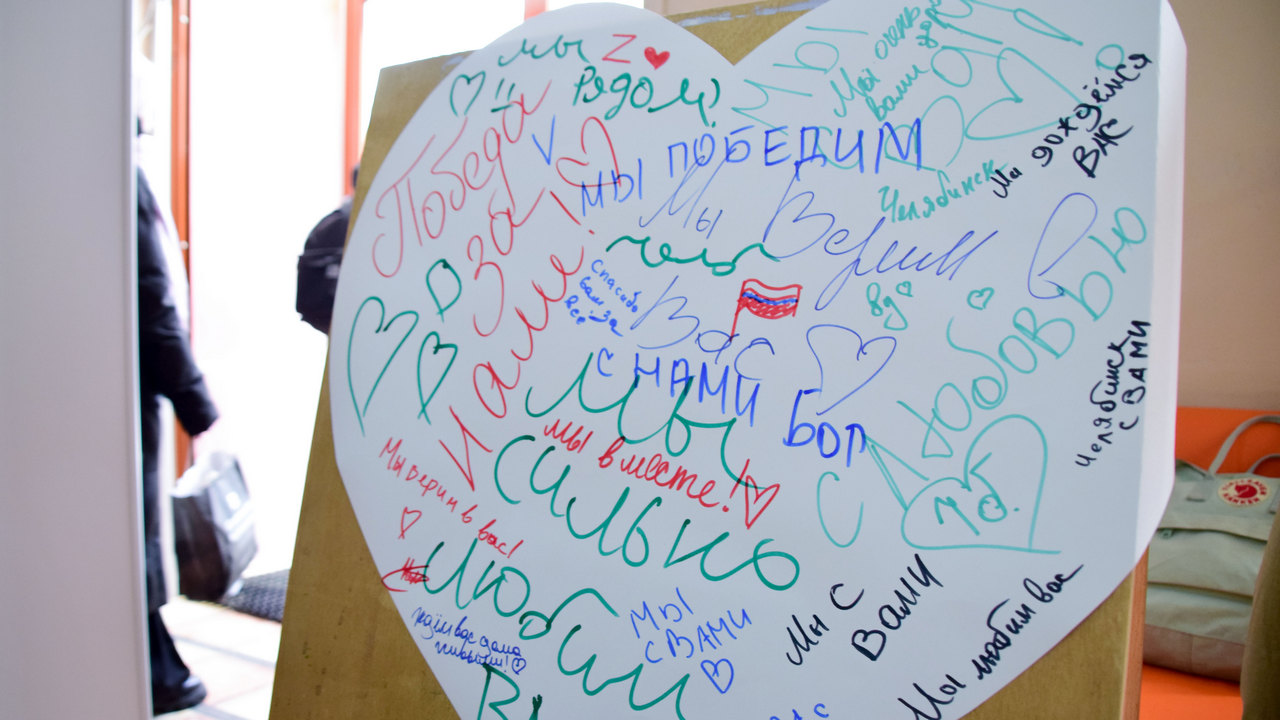 мы Z
Рядом!
Мы
Мы очень
вами
Мы дождёмся
Вас
Победа
за
Нами!
V
МЫ ПОБЕДИМ
Челябинск
Мы Верим
Вас
Спасибо
вам за
всё
С НАМИ БОГ
С Любовью
Челябинск
С ВАМИ
Мы вместе!
Мы верим в вас!
Мы
СИЛЬНО
Любим
Ю.
ждём вас дома
живыми!
МЫ
С ВАМИ
Мы с
Вами
Мы любим вас